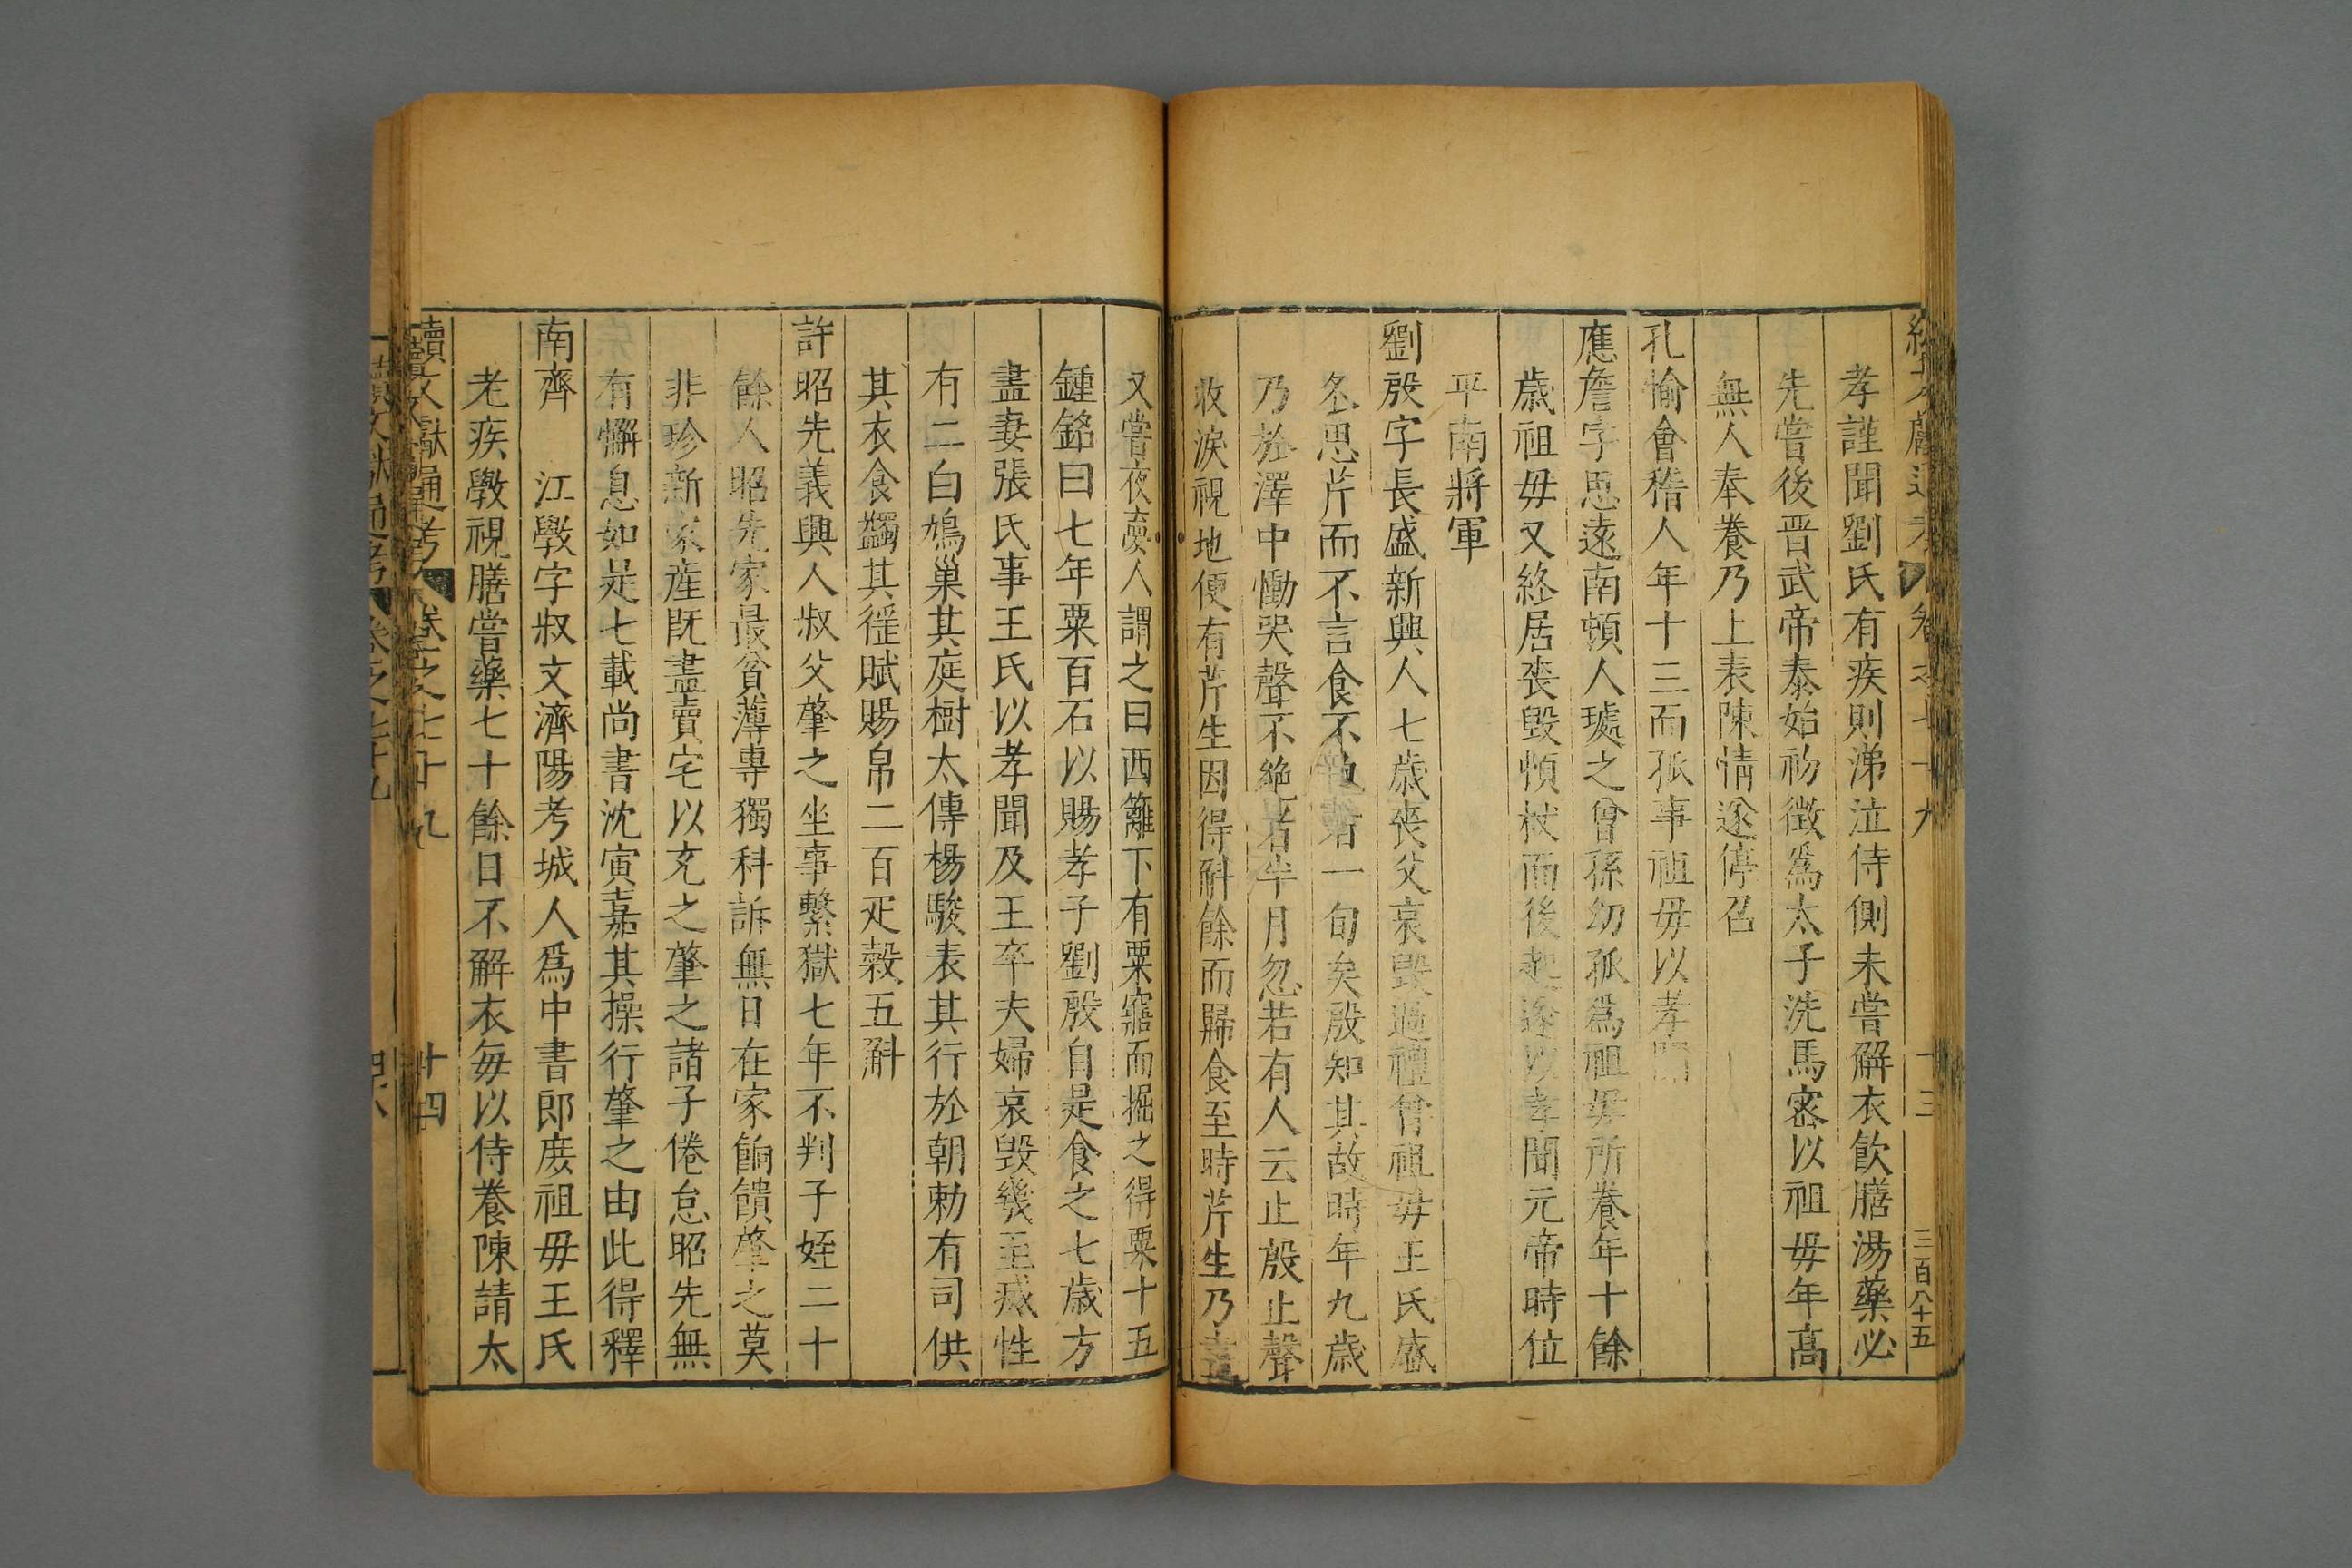 孝謹聞劉氏有疾則涕泣侍側未嘗解衣飲膳湯藥必
先嘗後晋武帝泰始初徵爲太子洗馬密以祖毋年髙
無人奉養乃上表陳情遂停召
孔愉會稽人年十三而孤事祖毋以孝聞
應詹字思遠南頓人璩之曾孫幼孤爲祖毋所養年十餘
歲祖毋又終居喪毀頓杖而後起遂以孝聞元帝時位
平南將軍
劉殷字長盛新興人七歲喪父哀毀過禮曾祖毋王氏盛
冬思芹而不言食不飽者一旬矣殷知其故時年九歲
乃於澤中慟哭聲不絶者半月忽若有人云止殷止聲
收淚視地便有芹生因得斛餘而歸食至時芹生乃盡
又嘗夜夢人謂之曰西籬下有粟寤而掘之得粟十五
鍾銘曰七年粟百石以賜孝子劉殷自是食之七歲方
盡妻張氏事王氏以孝聞及王卒夫婦哀毀幾至滅性
有二白鳩巢其庭樹太傅楊駿表其行於朝勅有司供
其衣食蠲其徭賦賜帛二百疋穀五斛
許昭先義興人叔父肇之坐事繫獄七年不判子姪二十
餘人昭先家最貧薄專獨科訴無日在家餉饋肇之莫
非珍新家産既盡賣宅以充之肇之諸子倦怠昭先無
有懈息如是七載尚書沈寅嘉其操行肇之由此得釋
南齊　江斆字叔文濟陽考城人爲中書郎庻祖毋王氏
老疾斆視膳嘗藥七十餘日不解衣每以侍養陳請太
續文獻通考　卷之七十九　十四